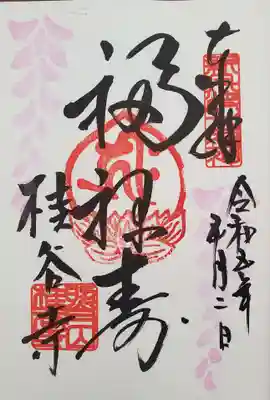 奉拝
福禄寿
桂谷寺
令和五年
五月二日